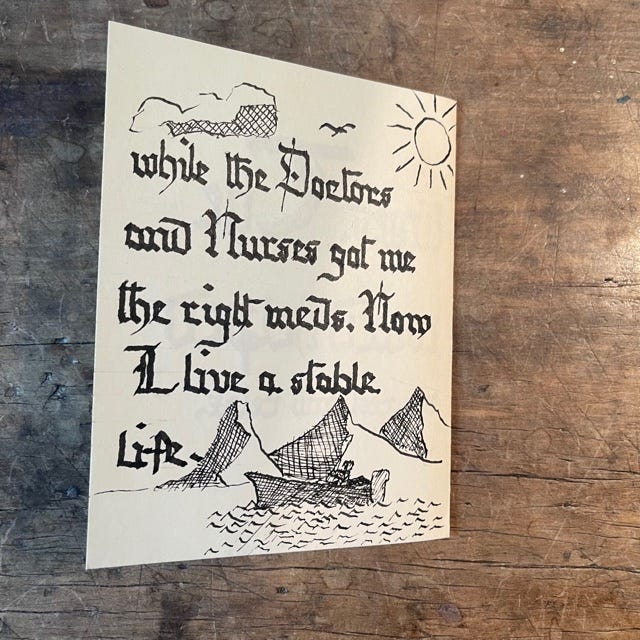 while the Doctors
and Nurses got me
the right meds. Now
I live a stable
Life.